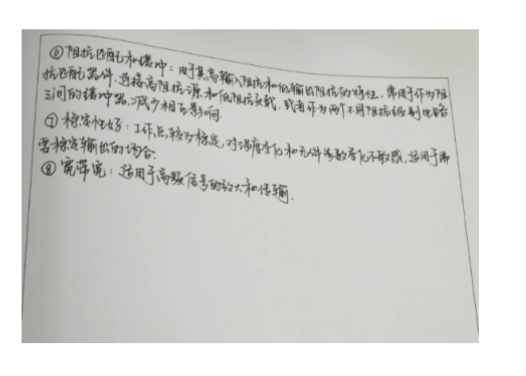 ⑥阻抗匹配和缓冲：由于其高输入阻抗和低输出阻抗的特性，常用于作为阻
抗匹配器件，连接高阻抗源和低阻抗负载，或者作为两个不同阻抗级别电路
之间的缓冲器，减少相互影响．
⑦稳定性好：工作点较为稳定，对温度变化和元件参数变化不敏感，适用于需
要稳定输出的场合．
⑧宽带宽：适用于高频信号的放大和传输．